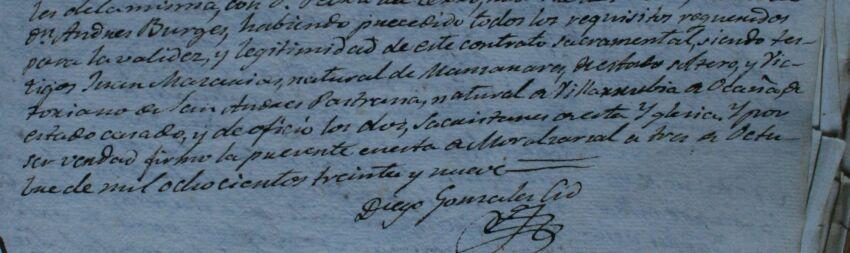 les de la misma, con D.
Dn. Andres Burges, habiendo precedido todos los requisitos requeridos
para la validez, y legitimidad de este contrato sacramental, siendo tes-
tigos Juan Macarias, natural de Manzanares, de estado soltero, y Vic-
toriano de San Andres Pastrana, natural de Villarrubia de Ocaña, de
estado casado, y de oficio los dos, Sacristanes de esta Yglesia. Y por
ser verdad firmo la presente en esta de Moralzarzal a tres de Octu-
bre de mil ochocientos treinta y nueve
Diego Gonzales Cid